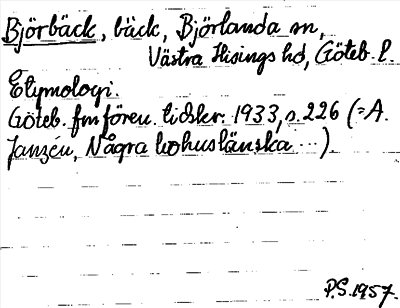 Björbäck, bäck, Björlanda sn,
Västra Hisings hd, Göteb. l.
Etymologi.
Göteb. fmfören. tidskr. 1933, s. 226 (= A.
Janzén, Några bohuslänska ...)
P.S. 1957.